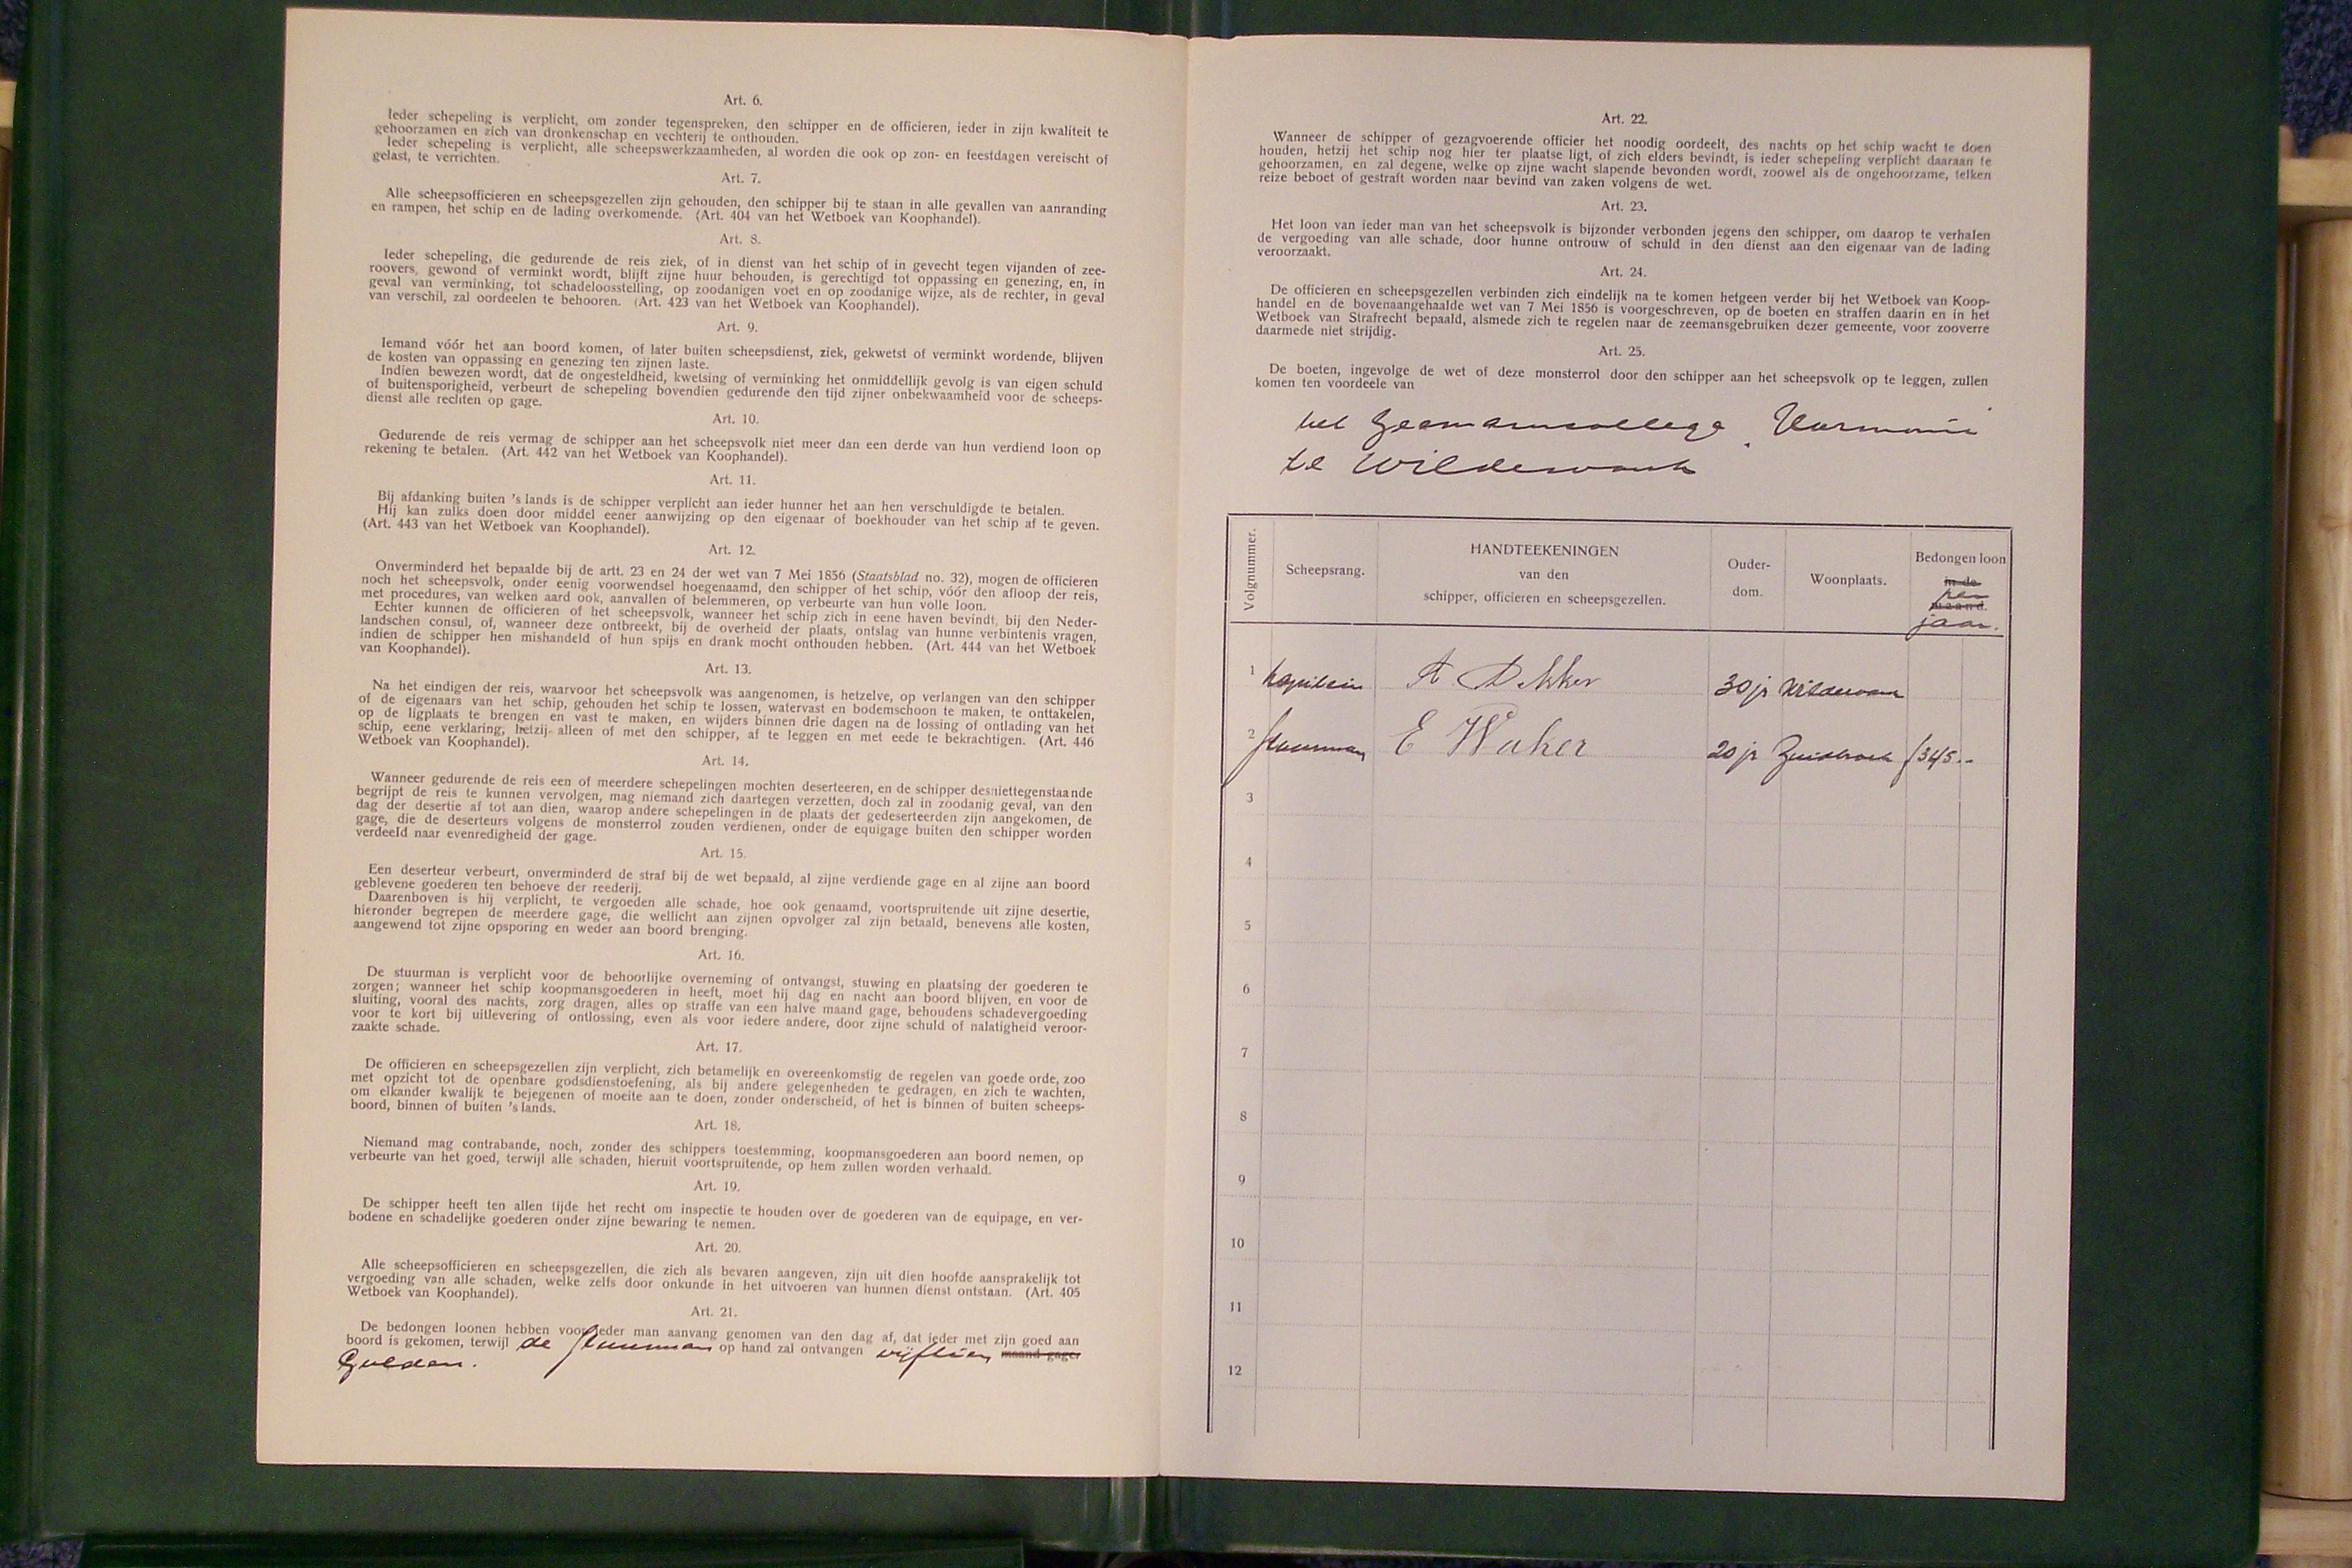 Art. 6.
Ieder schepeling is verplicht, om zonder tegenspreken, den schipper en de officieren, ieder in zijn kwaliteit te
gehoorzamen en zich van dronkenschap en vechterij te onthouden.
Ieder schepeling is verplicht, alle scheepswerkzaamheden, al worden die ook op zon- en feestdagen vereischt of
gelast, te verrichten.
Art. 7.
Alle scheepsofficieren en scheepsgezellen zijn gehouden, den schipper bij te staan in alle gevallen van aanranding
en rampen, het schip en de lading overkomende. (Art. 404 van het Wetboek van Koophandel).
Art. 8.
Ieder schepeling, die gedurende de reis ziek, of in dienst van het schip of in gevecht tegen vijanden of zee-
roovers, gewond of verminkt wordt, blijft zijne huur behouden, is gerechtigd tot oppassing en genezing, en, in
geval van verminking, tot schadeloosstelling, op zoodanigen voet en op zoodanige wijze, als de rechter, in geval
van verschil, zal oordeelen te behooren. (Art. 423 van het Wetboek van Koophandel).
Art. 9.
Iemand vóór het aan boord komen, of later buiten scheepsdienst, ziek, gekwetst of verminkt wordende, blijven
de kosten van oppassing en genezing ten zijnen laste.
Indien bewezen wordt, dat de ongesteldheid, kwetsing of verminking het onmiddellijk gevolg is van eigen schuld
of buitensporigheid, verbeurt de schepeling bovendien gedurende den tijd zijner onbekwaamheid voor de scheeps-
dienst alle rechten op gage.
Art. 10.
Gedurende de reis vermag de schipper aan het scheepsvolk niet meer dan een derde van hun verdiend loon op
rekening te betalen. (Art. 442 van het Wetboek van Koophandel).
Art. 11.
Bij afdanking buiten 's lands is de schipper verplicht aan ieder hunner het aan hen verschuldigde te betalen.
Hij kan zulks doen door middel eener aanwijzing op den eigenaar of boekhouder van het schip af te geven.
(Art. 443 van het Wetboek van Koophandel).
Art. 12.
Onverminderd het bepaalde bij de artt. 23 en 24 der wet van 7 Mei 1856 (Staatsblad no. 32), mogen de officieren
noch het scheepsvolk, onder eenig voorwendsel hoegenaamd, den schipper of het schip, vóór den afloop der reis,
met procedures, van welken aard ook, aanvallen of belemmeren, op verbeurte van hun volle loon.
Echter kunnen de officieren of het scheepsvolk, wanneer het schip zich in eene haven bevindt, bij den Neder-
landschen consul, of, wanneer deze ontbreekt, bij de overheid der plaats, ontslag van hunne verbintenis vragen,
indien de schipper hen mishandeld of hun spijs en drank mocht onthouden hebben. (Art. 444 van het Wetboek
van Koophandel).
Art. 13.
Na het eindigen der reis, waarvoor het scheepsvolk was aangenomen, is hetzelve, op verlangen van den schipper
of de eigenaars van het schip, gehouden het schip te lossen, watervast en bodemschoon te maken, te onttakelen,
op de ligplaats te brengen en vast te maken, en wijders binnen drie dagen na de lossing of ontlading van het
schip, eene verklaring, hetzij alleen of met den schipper, af te leggen en met eede te bekrachtigen. (Art. 446
Wetboek van Koophandel).
Art. 14.
Wanneer gedurende de reis een of meerdere schepelingen mochten deserteeren, en de schipper desniettegenstaande
begrijpt de reis te kunnen vervolgen, mag niemand zich daartegen verzetten, doch zal in zoodanig geval, van den
dag der desertie af tot aan dien, waarop andere schepelingen in de plaats der gedeserteerden zijn aangekomen, de
gage, die de deserteurs volgens de monsterrol zouden verdienen, onder de equigage buiten den schipper worden
verdeeld naar evenredigheid der gage.
Art. 15.
Een deserteur verbeurt, onverminderd de straf bij de wet bepaald, al zijne verdiende gage en al zijne aan boord
geblevene goederen ten behoeve der reederij.
Daarenboven is hij verplicht, te vergoeden alle schade, hoe ook genaamd, voortspruitende uit zijne desertie,
hieronder begrepen de meerdere gage, die wellicht aan zijnen opvolger zal zijn betaald, benevens alle kosten,
aangewend tot zijne opsporing en weder aan boord brenging.
Art. 16.
De stuurman is verplicht voor de behoorlijke overneming of ontvangst, stuwing en plaatsing der goederen te
zorgen; wanneer het schip koopmansgoederen in heeft, moet hij dag en nacht aan boord blijven, en voor de
sluiting, vooral des nachts, zorg dragen, alles op straffe van een halve maand gage, behoudens schadevergoeding
voor te kort bij uitlevering of ontlossing, even als voor iedere andere, door zijne schuld of nalatigheid veroor-
zaakte schade.
Art. 17.
De officieren en scheepsgezellen zijn verplicht, zich betamelijk en overeenkomstig de regelen van goede orde, zoo
met opzicht tot de openbare godsdienstoefening, als bij andere gelegenheden te gedragen, en zich te wachten,
om elkander kwalijk te bejegenen of moeite aan te doen, zonder onderscheid, of het is binnen of buiten scheeps-
boord, binnen of buiten 's lands.
Art. 18.
Niemand mag contrabande, noch, zonder des schippers toestemming, koopmansgoederen aan boord nemen, op
verbeurte van het goed, terwijl alle schaden, hieruit voortspruitende, op hem zullen worden verhaald.
Art. 19.
De schipper heeft ten allen tijde het recht om inspectie te houden over de goederen van de equipage, en ver-
bodene en schadelijke goederen onder zijne bewaring te nemen.
Art. 20.
Alle scheepsofficieren en scheepsgezellen, die zich als bevaren aangeven, zijn uit dien hoofde aansprakelijk tot
vergoeding van alle schaden, welke zelfs door onkunde in het uitvoeren van hunnen dienst ontstaan. (Art. 405
Wetboek van Koophandel).
Art. 21.
De bedongen loonen hebben voor ieder man aanvang genomen van den dag af, dat ieder met zijn goed aan
boord is gekomen, terwijl de stuurman op hand zal ontvangen vijftien maand gage.
Gulden.
Art. 22.
Wanneer de schipper of gezagvoerende officier het noodig oordeelt, des nachts op het schip wacht te doen
houden, hetzij het schip nog hier ter plaatse ligt, of zich elders bevindt, is ieder schepeling verplicht daaraan te
gehoorzamen, en zal degene, welke op zijne wacht slapende bevonden wordt, zoowel als de ongehoorzame, telken
reize beboet of gestraft worden naar bevind van zaken volgens de wet.
Art. 23.
Het loon van ieder man van het scheepsvolk is bijzonder verbonden jegens den schipper, om daarop te verhalen
de vergoeding van alle schade, door hunne ontrouw of schuld in den dienst aan den eigenaar van de lading
veroorzaakt.
Art. 24.
De officieren en scheepsgezellen verbinden zich eindelijk na te komen hetgeen verder bij het Wetboek van Koop-
handel en de bovenaangehaalde wet van 7 Mei 1856 is voorgeschreven, op de boeten en straffen daarin en in het
Wetboek van Strafrecht bepaald, alsmede zich te regelen naar de zeemansgebruiken dezer gemeente, voor zooverre
daarmede niet strijdig.
Art. 25.
De boeten, ingevolge de wet of deze monsterrol door den schipper aan het scheepsvolk op te leggen, zullen
komen ten voordeele van
het Zeemanscollege
te Wildervank
Volgnummer. Scheepsrang. HANDTEEKENINGEN van den schipper, officieren en scheepsgezellen. Ouder-dom. Woonplaats. Bedongen loon in de maand. per jaar.
1 Kapitein A Dekker 30 jr Wildervank
2 stuurman E Waker 20 jr Zuidbroek f 345.-
3
4
5
6
7
8
9
10
11
12